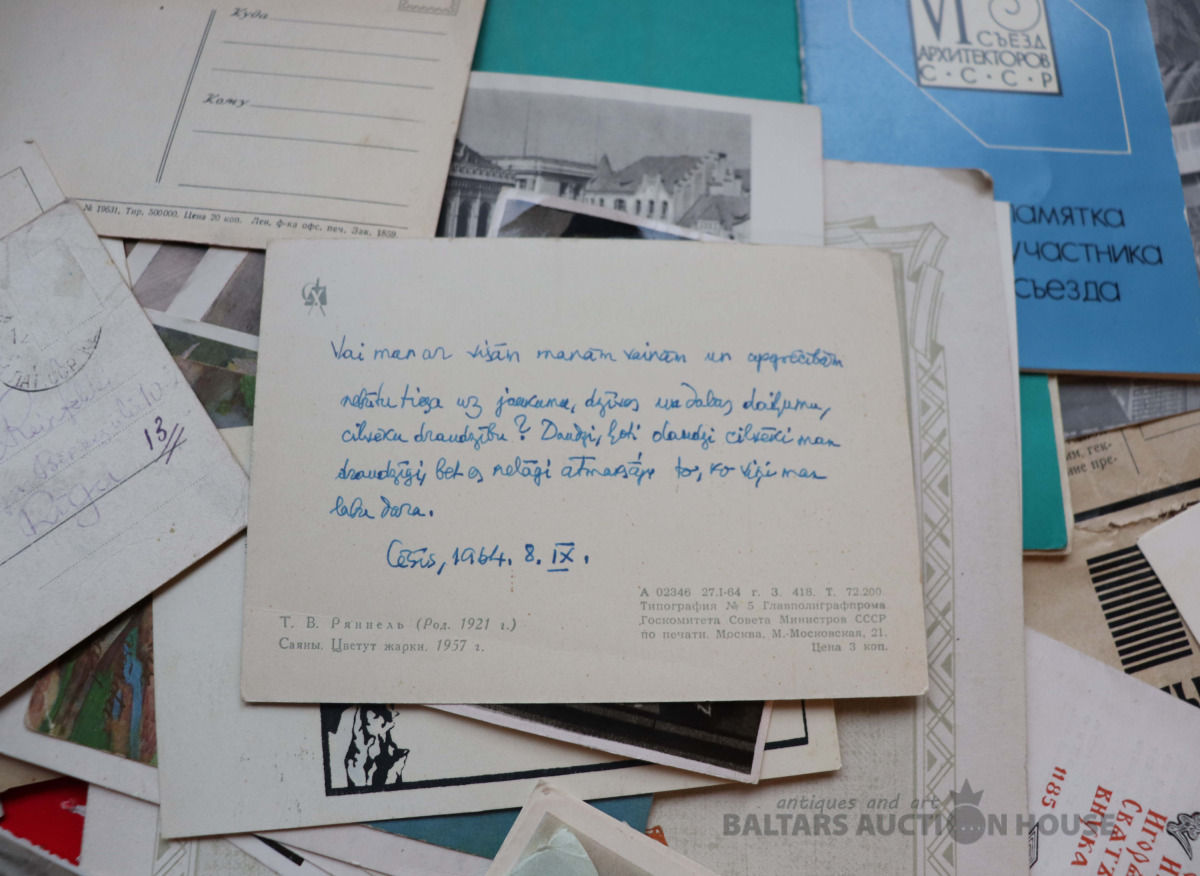 Куда
Кому
№ 19631, Тир. 500.000. Цена 20 коп. Лен. ф-ка офс. печ. Зак. 1859.
VI
СЪЕЗД
АРХИТЕКТОРОВ
С·С·С·Р
ПАМЯТКА
УЧАСТНИКА
СЪЕЗДА
Rīga
13
Vai man ar visām manām vainām un apgrēcībām
nebūtu tiesa uz jaukumu, dzīves un dabas daiļumu,
cilvēku draudzību? Daudzi, ļoti daudzi cilvēki man
draudzīgi, bet es nelāgi atmaksāju to, ko viņi man
labu dara.
Cēsīs, 1964. 8. IX.
Т. В. Ряннель (Род. 1921 г.)
Саяны. Цветут жарки. 1957 г.
А 02346 27.I-64 г. З. 418. Т. 72.200.
Типография № 5 Главполиграфпрома
Госкомитета Совета Министров СССР
по печати. Москва, М.-Московская, 21.
Цена 3 коп.
1185
КНИЖКА
antiques and art
BALTARS AUCTION HOUSE